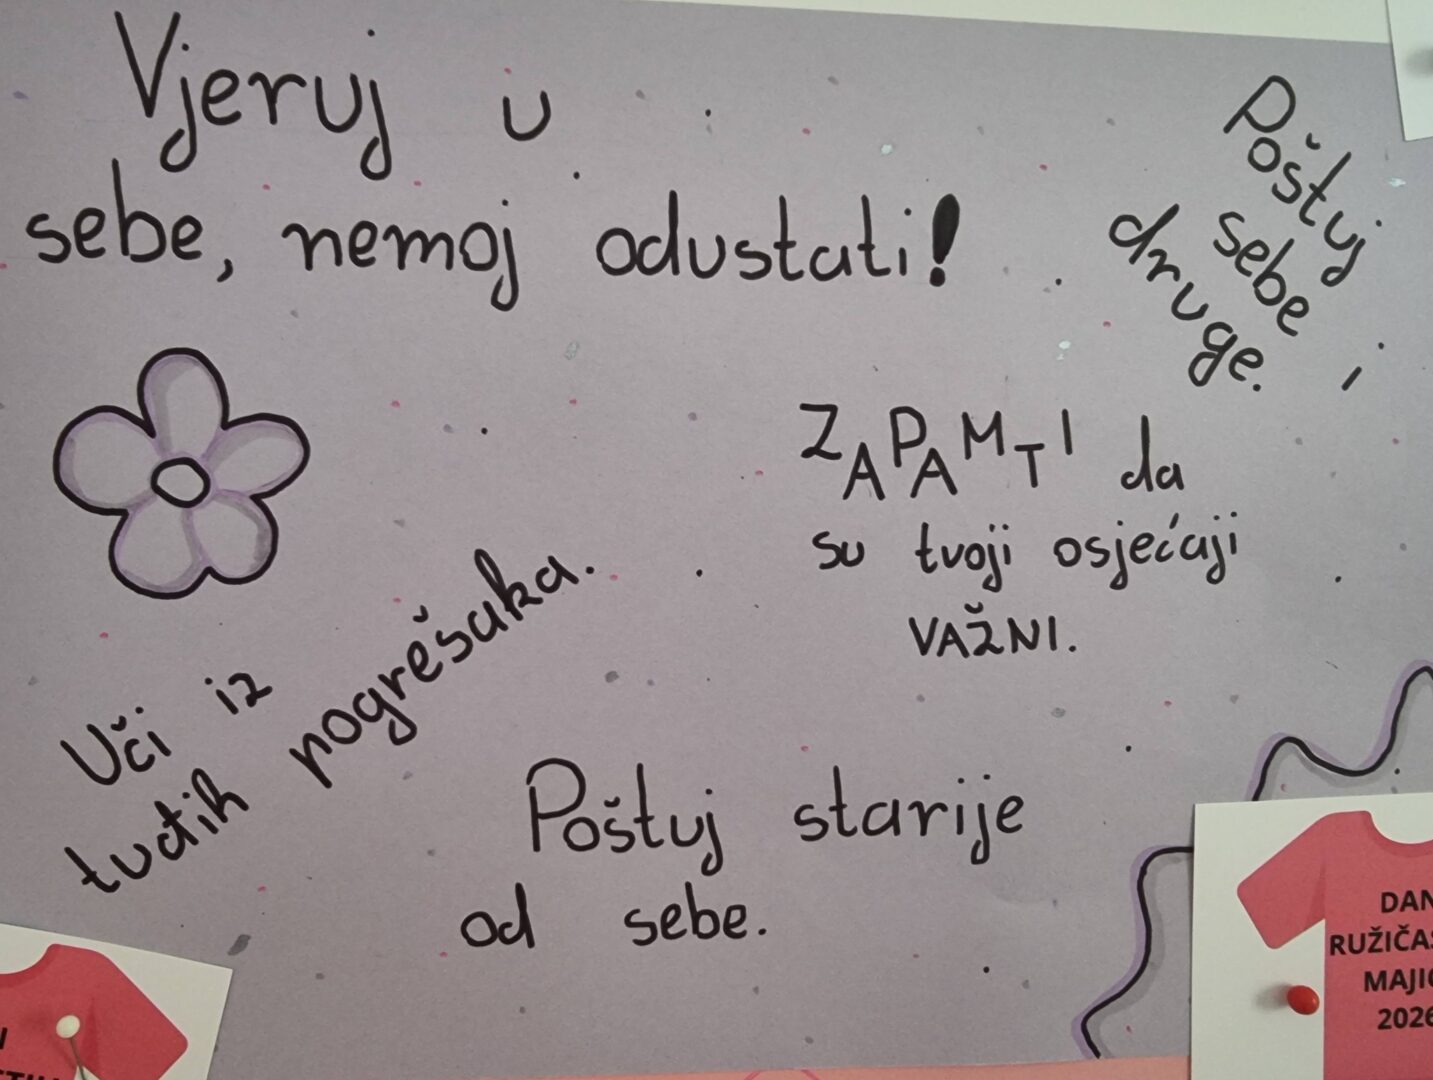 Vjeruj u
sebe, nemoj odustati!
Poštuj
sebe i
druge.
ZAPAMTI da
su tvoji osjećaji
VAŽNI.
Uči iz
tuđih pogrešaka.
Poštuj starije
od sebe.
DAN
MAJIC
2026